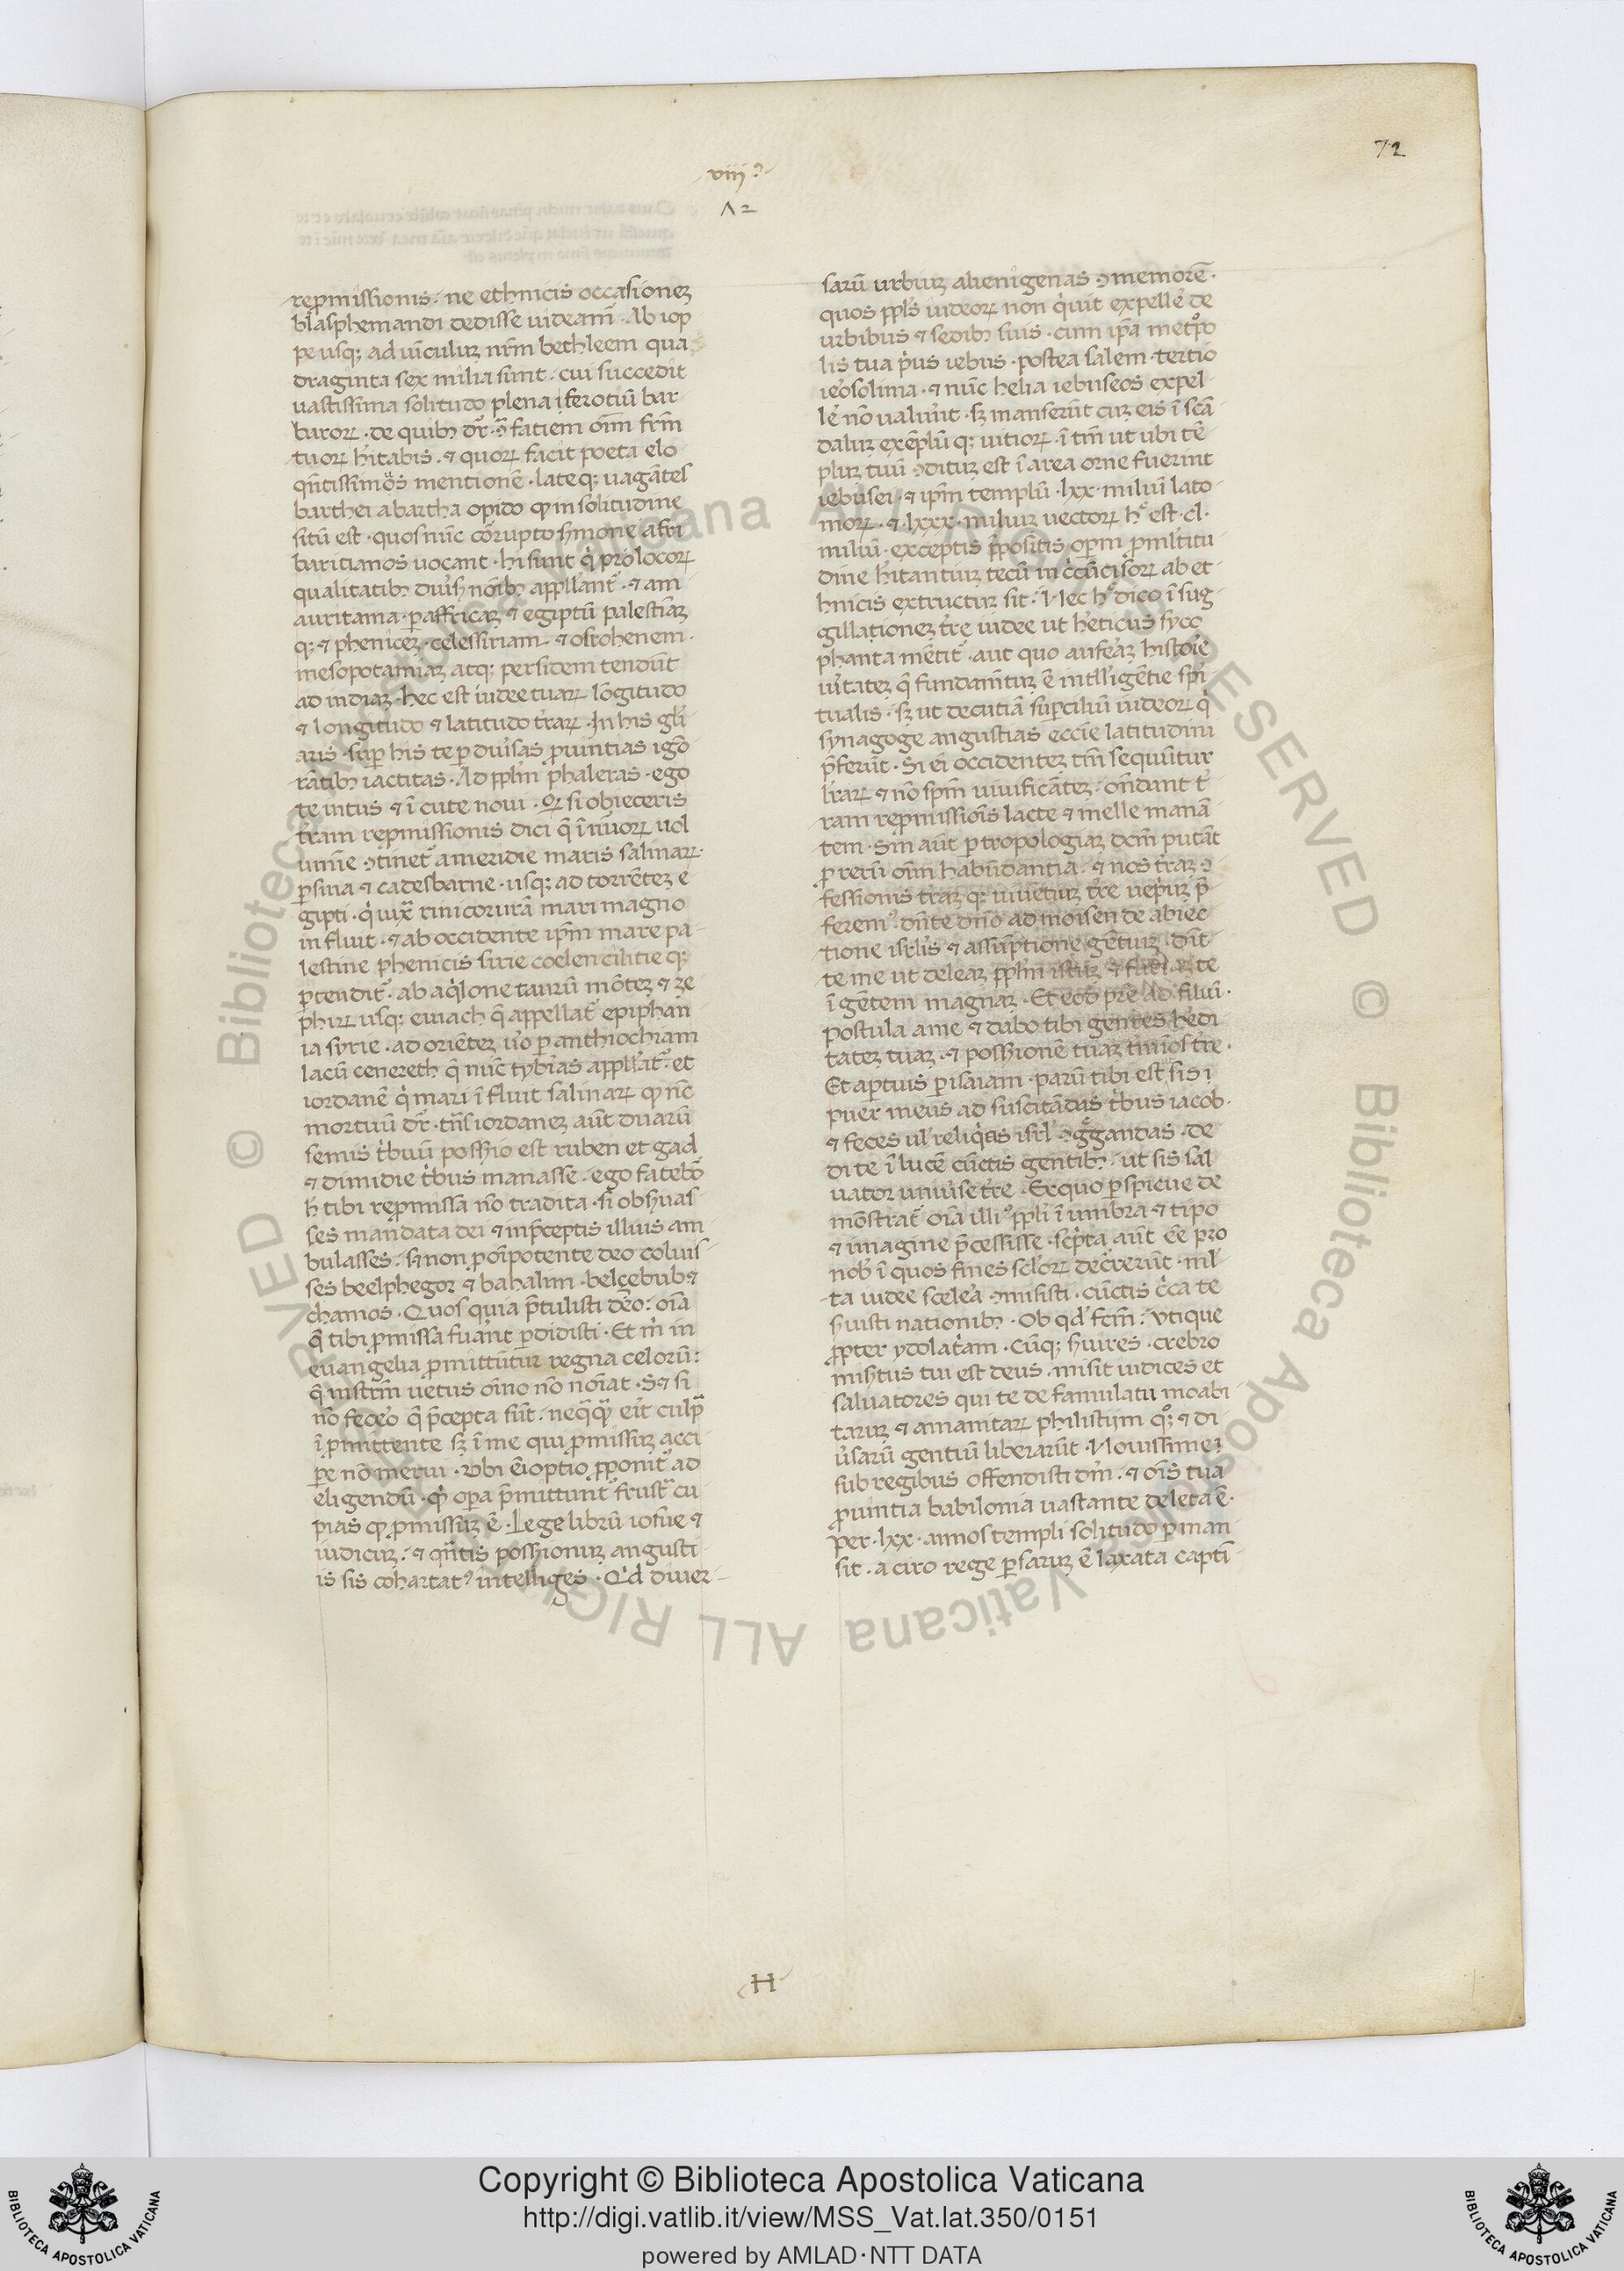 72
viii
repmissionis. ne ethnicis occasionez
blasphemandi dedisse uideam̃. Ab iop
pe usq; ad uiculuz nr̃m bethleem qua
draginta sex milia sunt. cui succedit
uastissima solitudo plena i ferociũ bar
baroꝝ. de quibꝫ dr̃. ↄ̃ faciem om̃ fr̃m
tuoꝝ hitabis. ⁊ quoꝝ facit poeta elo
qñtissimꝰ mentionẽ. lateq; uagãtes
barthei abartha opido qđ in solitudine
sitũ est. quos nũc corrupto smone afri
baricianos uocant. hi sunt q̇ pro locoꝝ
qualitatibꝫ diu̓sis noĩbꝫ appllãnt̃. ⁊ am
auritama. ꝑ affricaꝫ ⁊ egiptũ palestiãꝫ
q; ⁊ phenicez. celessiriam. ⁊ osrohenem.
mesopotamiaꝫ atq; persidem tendũt
ad indiaꝫ. hec est iudee tuaꝝ lõgitudo
⁊ longitudo ⁊ latitudo tr̃aꝝ. In his gl̃i
aris. suꝑ his te ꝑ diu̓sas ꝓuintias igõ
rãtibꝫ iactitas. Ad ppl̃m phaleras. ego
te intus ⁊ ĩ cute noui. Qđ si obieceris
tr̃am repmissionis dici q̃ ĩ nũoꝝ uol
umĩe ↄtinet̃ a meridie maris salinaꝝ.
ꝑ sina ⁊ cadesbarne. usq; ad torrẽtez e
gipti. q̇ iuxᵃ rinicorurã mari magno
influit. ⁊ ab occidente ip̃m mare pa
lestine phenicis sirie coelen cilitie q;
ꝑtendit̃. ab aq̇lone taurũ mõtez ⁊ ze
phiꝝ usq; emach q̃ appellat̃ epiphan
ia syrie. ad oriẽtez u̓o ꝑ anthiochiam
lacũ cenereth q̃ nũc tyb̓ias appllat̃. et
iordanẽ q̇ mari ĩfluit salinaꝝ qđ nc̃
mortuũ dr̃. tñs iordanez aũt duarũ
semis tb̓uũ possio est ruben et gad
⁊ dimidie tb̓us manasse. ego fatebõ
h̃ tibi repmissa nõ tradita. si obsuas
ses mandata dei ⁊ in p̃ceptis illius am
bulasses. si non ꝓ oĩpotente deo coluis
ses beelphegor ⁊ bahalim. belcebub ⁊
chamos. Quos quia p̃tulisti deo: oĩa
q̃ tibi ꝓmissa fuãnt ꝑdidisti. Et m̓ in
euangelia ꝓmittũtur regna celorũ:
q̃ instr̃m uetus oĩno nõ noĩat. S⁊ si
nõ feceo q̃ p̃cepta sũt. neqᵃqᵃ eit culpᵃ
ĩ ꝓmittente sꝫ ĩ me qui ꝓmissuꝫ acci
pe nõ merui. Vbi eĩ optio ꝓponit̃ ad
eligendũ. qđ oꝑa p̃mittunt frustᵃ cu
pias qđ ꝓmissuꝫ ẽ. Lege librũ iosue ⁊
iudicuꝫ. ⁊ qñtis possionuꝫ angusti
is sis cohartatꝰ intelliges. Qđ diuer
sarũ urbiuꝫ alienigenas ↄmemorẽ.
quos ppls̃ iudeoꝝ non q̇uit expelle̓ de
urbibus ⁊ sedibꝫ suis. cum ip̃a met̃po
lis tua p̓us iebus. postea salem. tertio
ieosolima. ⁊ nũc helia iebuseos expel
le̓ nõ ualuit. sꝫ manserũt cuꝫ eis ĩ scã
daluꝫ exẽplũ q; uitioꝝ. ĩ tm̃ ut ubi tẽ
pluꝫ tuũ ↄdituꝫ est ĩ area orne fuerint
iebusei. ⁊ ip̃m templũ. lxx. miliũ lato
moꝝ. ⁊. lxxx. miliuꝫ uectoꝝ h̊ est. cl.
miliũ. exceptis p̃positis oꝑm ꝓ mltitu
dine h̃itantiuꝫ tecũ in c̓cũcisoꝝ ab et
hnicis extructuꝫ sit. Nec h̊ dico ĩ sug
gillationez tr̃e iudee ut he̓ticus syco
phanta mẽtit̃. aut quo aufeaꝫ histoie
uĩtatez q̃ fundam̃tuꝫ ẽ intll̃igẽtie spi
tualis. sꝫ ut decutiã suꝑciliũ iudeoꝝ q̇
synagoge angustias ecc̃ie latitudini
p̃ferũt. Si eĩ occidentez tm̃ sequũtur
l̓raꝝ ⁊ nõ spm̃ uiuificãtez. oñdant t̓
ram repmissiõis lacte ⁊ melle manã
tem. Sin aũt ꝑ tropologiaꝫ dc̃m putãt
ꝓ rerũ oĩm habũdantia. ⁊ nos tr̃aꝫ ↄ
fessionis tr̃aꝫ q; uiuẽtiuꝫ tr̃e uep̓uꝫ p̃
feremꝰ. dñte dño ad moisen de abiec
tione isrl̃is ⁊ assũptione gẽtiuꝫ. dĩt
te me ut deleaꝫ ppl̃m istuꝫ ⁊ faciaꝫ te
ĩ gẽtem magnaꝫ. Et eod̃ pr̃e ad filiũ.
postula a me ⁊ dabo tibi gentes he̓di
tatez tuaꝫ. ⁊ possionẽ tuaꝫ tm̃ios tr̃e.
Et aꝑtius ꝑ isaiam. parũ tibi est sis i
puer meus ad suscitãdas tb̓us iacob.
⁊ feces ul̃ reliq̇as isrl̃ ↄg̃gandas. de
di te ĩ lucẽ cũctis gentibꝫ. ut sis sal
uator uniu̓se tr̃e. Ex quo ꝑspicue de
mõstrat̃ oĩa illiꝰ ppl̃i ĩ umbra ⁊ tipo
⁊ imagine p̃cessisse. sc̓pta aũt ẽe pro
nob̃ ĩ quos fines scl̃oꝝ decr̃erũt. ml̃
ta iudee scele̓a ↄmisisti. cũctis c̓ca te
suisti nationibꝫ. Ob qđ fcm̃. vtique
ꝓpter ydolat̓am. cũq; suires. crebro
mistus tui est deus. misit iudices et
saluatores qui te de famulatu moabi
taruꝫ ⁊ amanitaꝝ philistijm q̊; ⁊ di
u̓sarũ gentiũ liberarũt. Nouissime
sub regibus offendisti dm̃. ⁊ oĩs tua
ꝓuintia babilonia uastante deleta ẽ.
Per. lxx. annos templi solitudo ꝑman
sit. a ciro rege ꝑsaruꝫ ẽ laxata capti
H
Copyright © Biblioteca Apostolica Vaticana
http://digi.vatlib.it/view/MSS_Vat.lat.350/0151
powered by AMLAD·NTT DATA